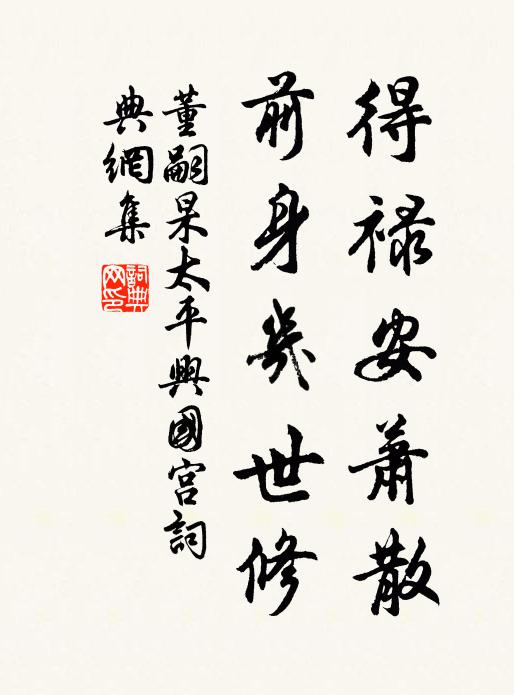 得祿安蕭散
前身幾世修
董嗣杲太平興國宮詞
典網集
詞典網印